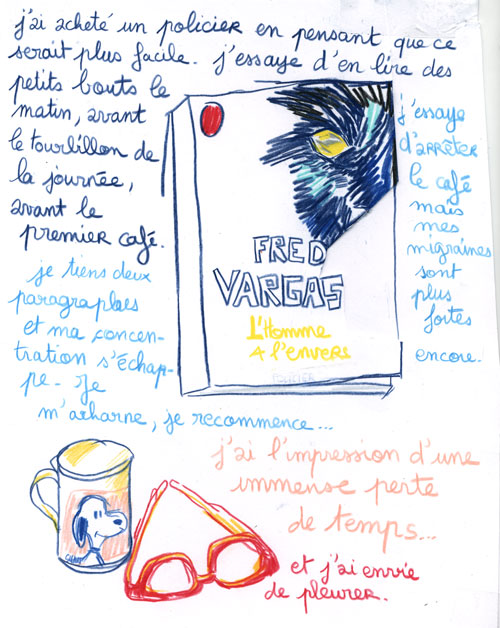 j'ai acheté un policier en pensant que ce
serait plus facile. j'essaye d'en lire des
petits bouts le
matin, avant
le tourbillon de
la journée,
avant le
premier café.
je tiens deux
paragraphes
et ma concen-
tration s'échap-
pe. Je
m'acharne, je recommence...
j'essaye
d'arrêter
le café
mais
mes
migraines
sont
plus
fortes
encore.
FRED
VARGAS
L'Homme
A l'envers
POLICIER
j'ai l'impression d'une
immense perte
de temps...
et j'ai envie
de pleurer.